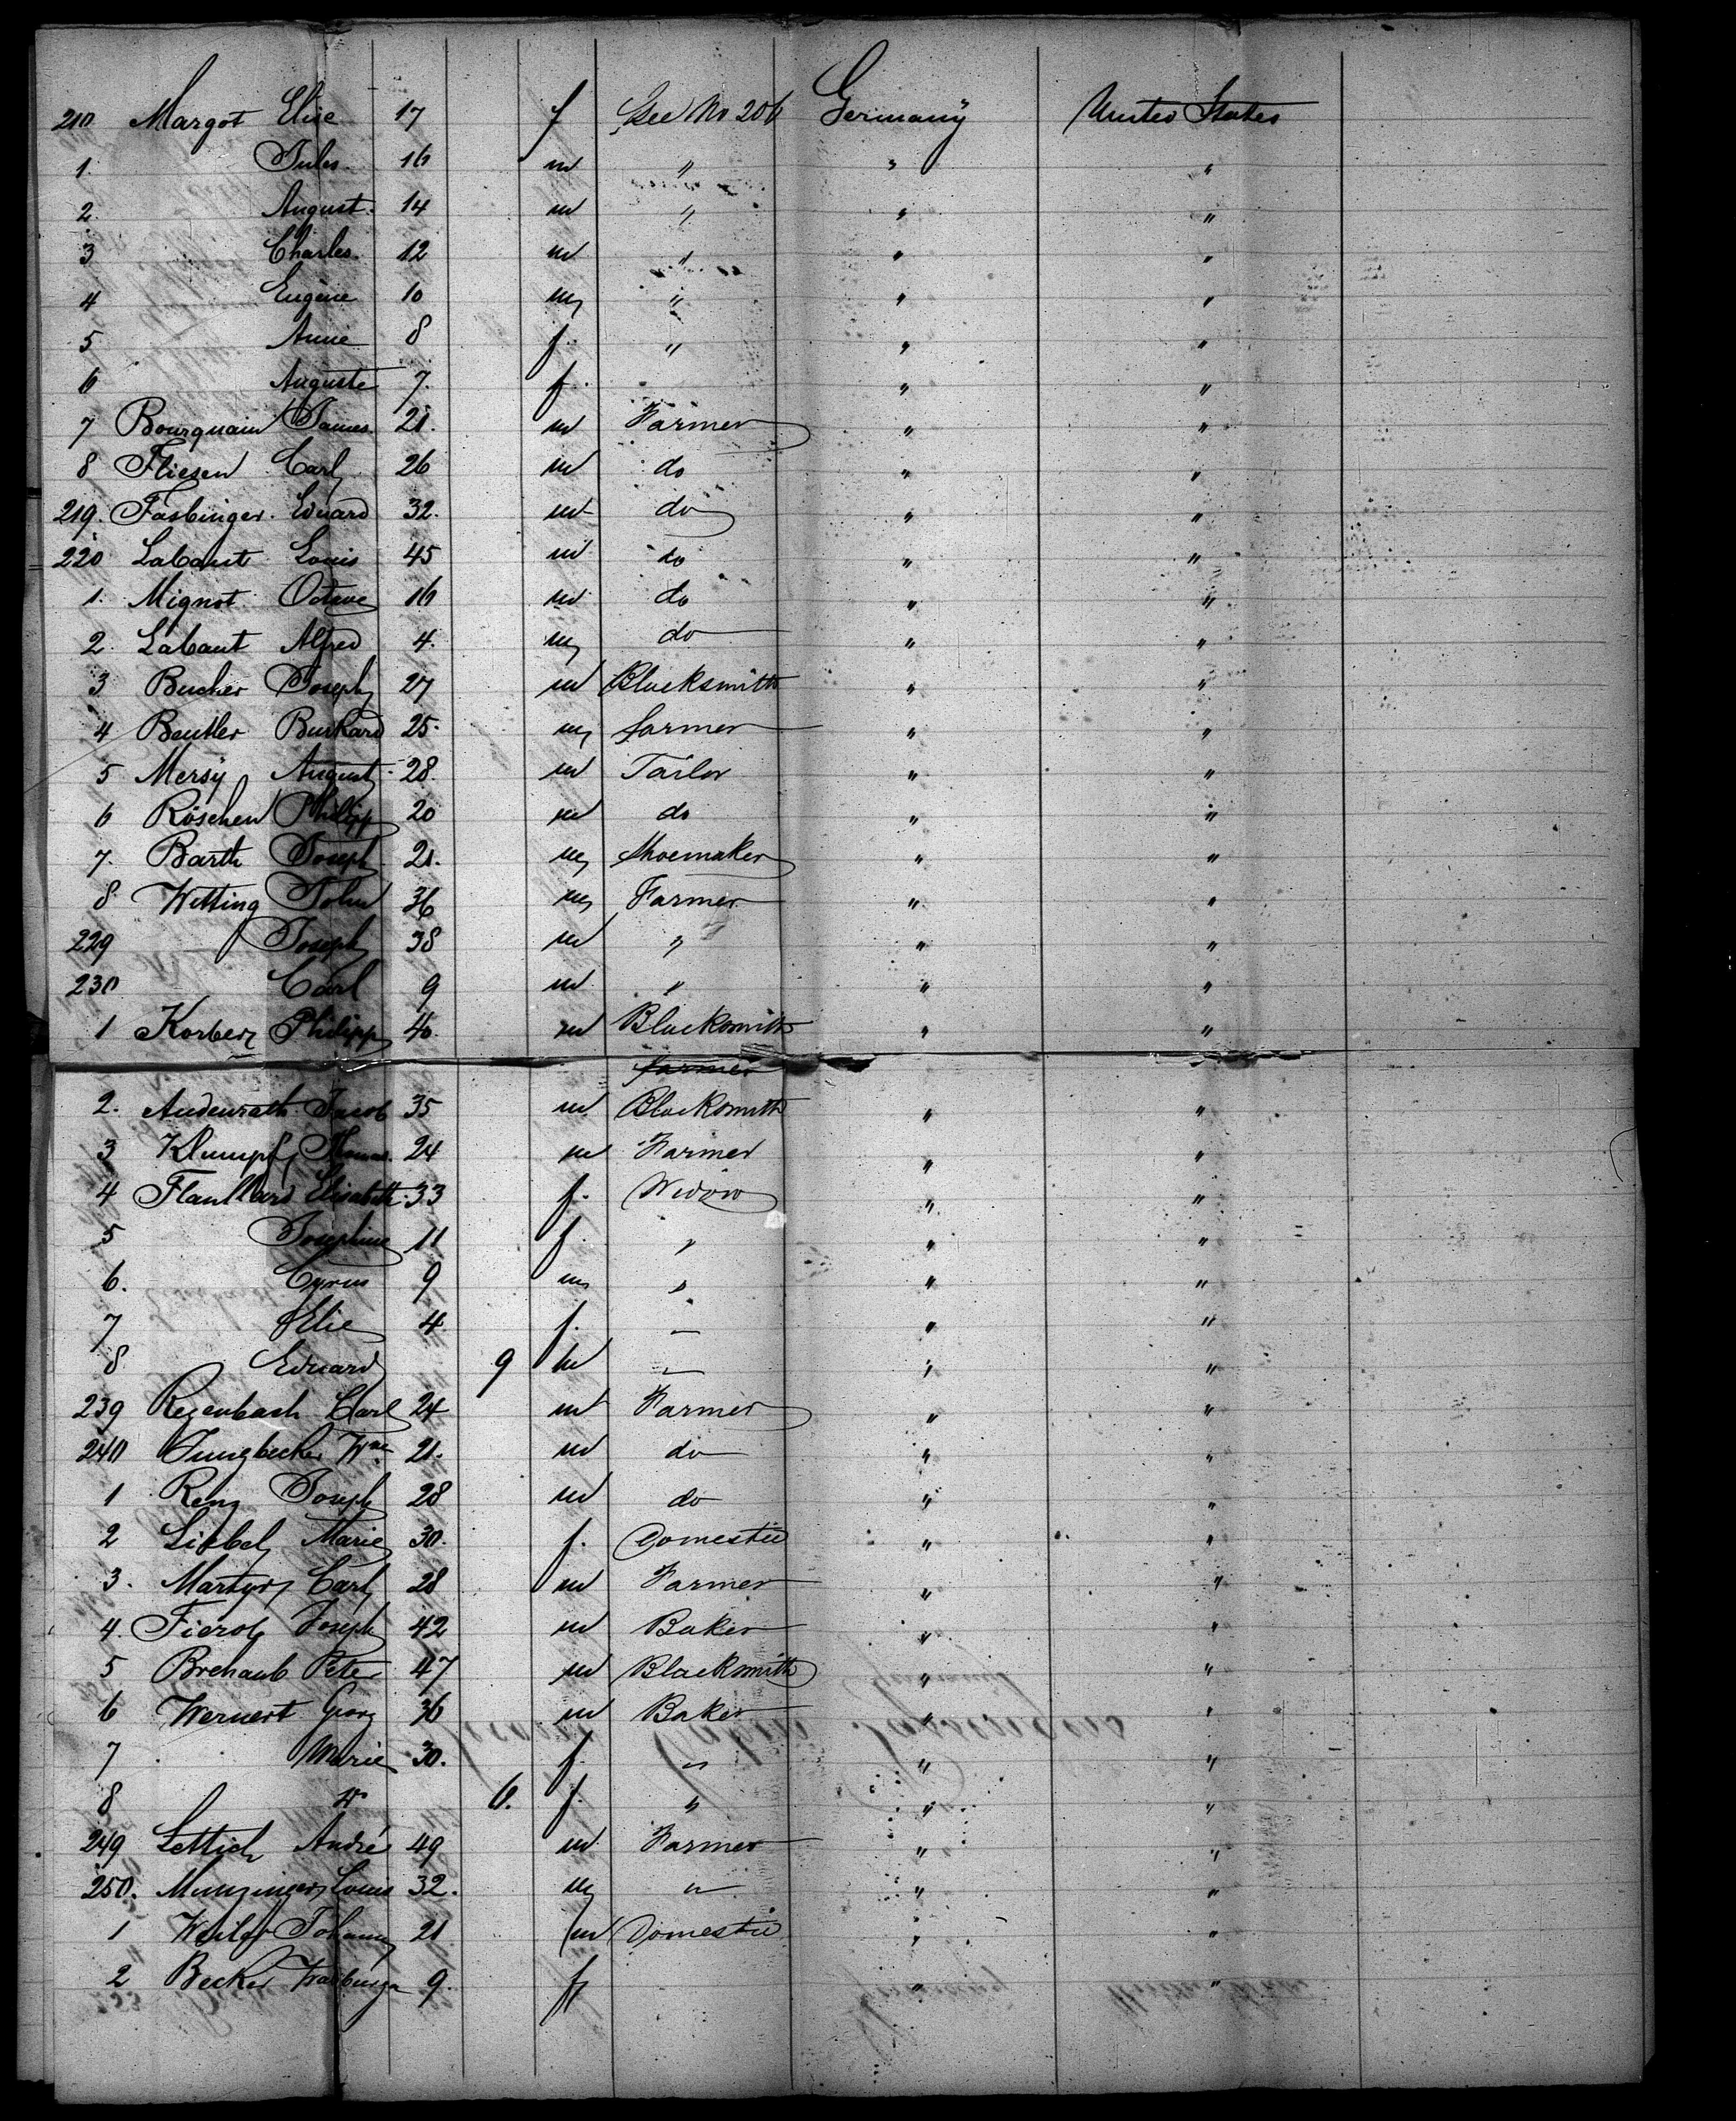 210 Margot Elise 17 f See No 206 Germany United States
1. Jules 16 m " " "
2. August. 14 m " " "
3 Charles. 12 m " " "
4 Eugène 10 m " " "
5 Annie 8 f. " " "
6 Auguste 7. f. " "
7 Bourquain James. 21. m Farmer " "
8 Fliesen Carl 26 m do " "
219. Fasbinger. Eduard 32. m do " "
220 Labaut Louis 45 m do " "
1. Mignot Octave 16 m do " "
2. Labaut Alfred 4. m do " "
3 Bucher Joseph 27 m Blacksmith " "
4 Beutler Burkard 25. m farmer " "
5 Mersÿ August 28. m Tailor " "
6 Röschen Philipp 20 m do " "
7. Barth Joseph 21. m Shoemaker " "
8 Witting John 36 m Farmer " "
229 Joseph 38 m " " "
230 Carl 9 m " " "
1 Korber Philipp 40. m Blacksmith " "
farmer
2. Audenrath Jacob 35 m Blacksmith " "
3 Klumpf Thomas. 24 m Farmer " "
4 Elisabeth. 33 f. Widow " "
5 Josephine 11 f. " " "
6. Cyrus 9 m " " "
7 Elie 4 f. " " "
8 Eduard 9 m " " "
239 Regenbach Carl 24 m Farmer " "
240 Jungbecker Wm 21. m do " "
1 Renz Joseph 28 m do " "
2 Liebel Marie 30. f. Domestic " "
3. Martyr Carl 28 m Farmer " "
4. Fierob Joseph 42 m Baker " "
5 Brehaub Peter 47 m Blacksmith " "
6 Wernert Georg 36 m Baker " "
7 Marie 30. f. " " "
8 6. f. " " "
249 Lettich André 49 m Farmer " "
250. Munzinger Louis 32. m " " "
1 Johann 21 m Domestic " "
2 Becker Walburga 9. f "